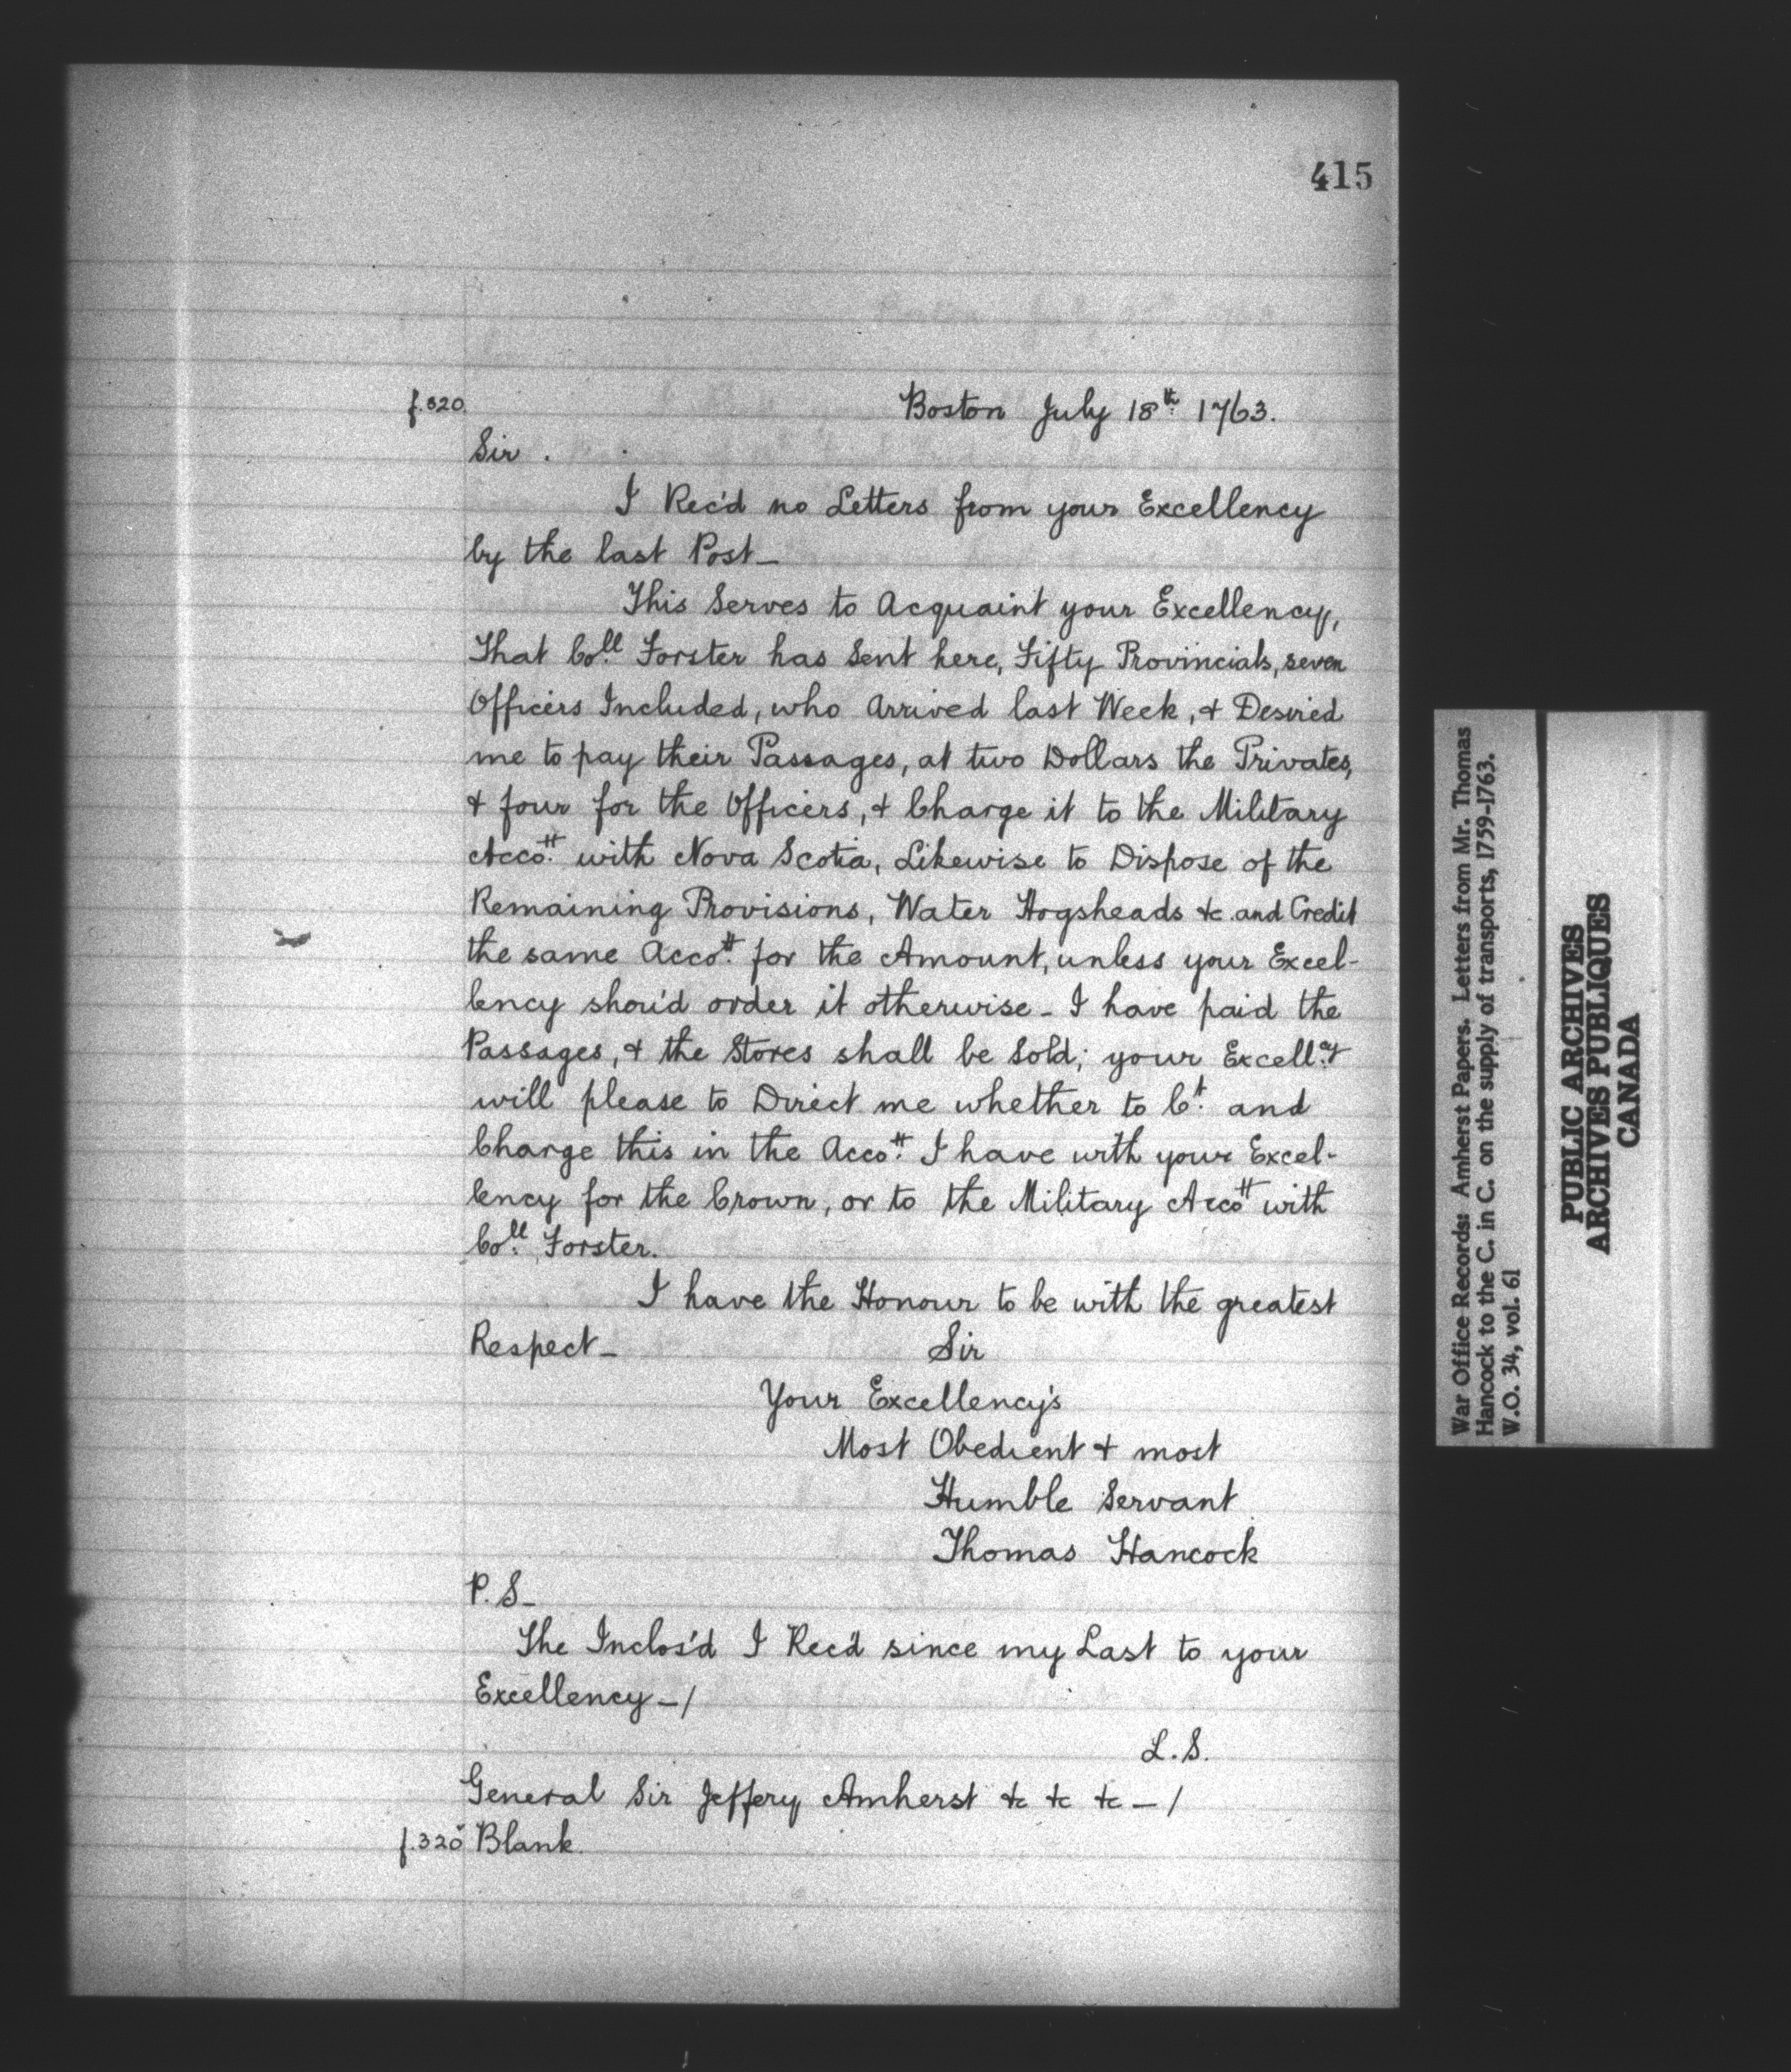 415
f.320. Boston July 18th. 1763.
Sir.
I Rec'd no Letters from your Excellency
by the last Post_
This Serves to Acquaint your Excellency,
That Coll. Forster has Sent here, Fifty Provincials, seven
Officers Included, who Arrived last Week, & Desired
me to pay their Passages, at two Dollars the Privates,
& four for the Officers, & Charge it to the Military
Accott. with Nova Scotia, Likewise to Dispose of the
Remaining Provisions, Water Hogsheads &c and Credit
the same Accott. for the Amount, unless your Excel-
lency shou'd order it otherwise_ I have paid the
Passages, & the Stores shall be Sold; your Excell.cy
will please to Direct me whether to Ct. and
Charge this in the Accott. I have with your Excel-
lency for the Crown, or to the Military Accott with
Coll. Forster.
I have the Honour to be with the greatest
Respect_ Sir
Your Excellency's
Most Obedient & most
Humble Servant
Thomas Hancock
P.S_
The Inclos'd I Rec'd since my Last to your
Excellency_/
L.S.
General Sir Jeffery Amherst &c &c &c_/
f.320v Blank.
War Office Records: Amherst Papers. Letters from Mr. Thomas
Hancock to the C. in C. on the supply of transports, 1759-1763.
W.O. 34, vol. 61
PUBLIC ARCHIVES
ARCHIVES PUBLIQUES
CANADA